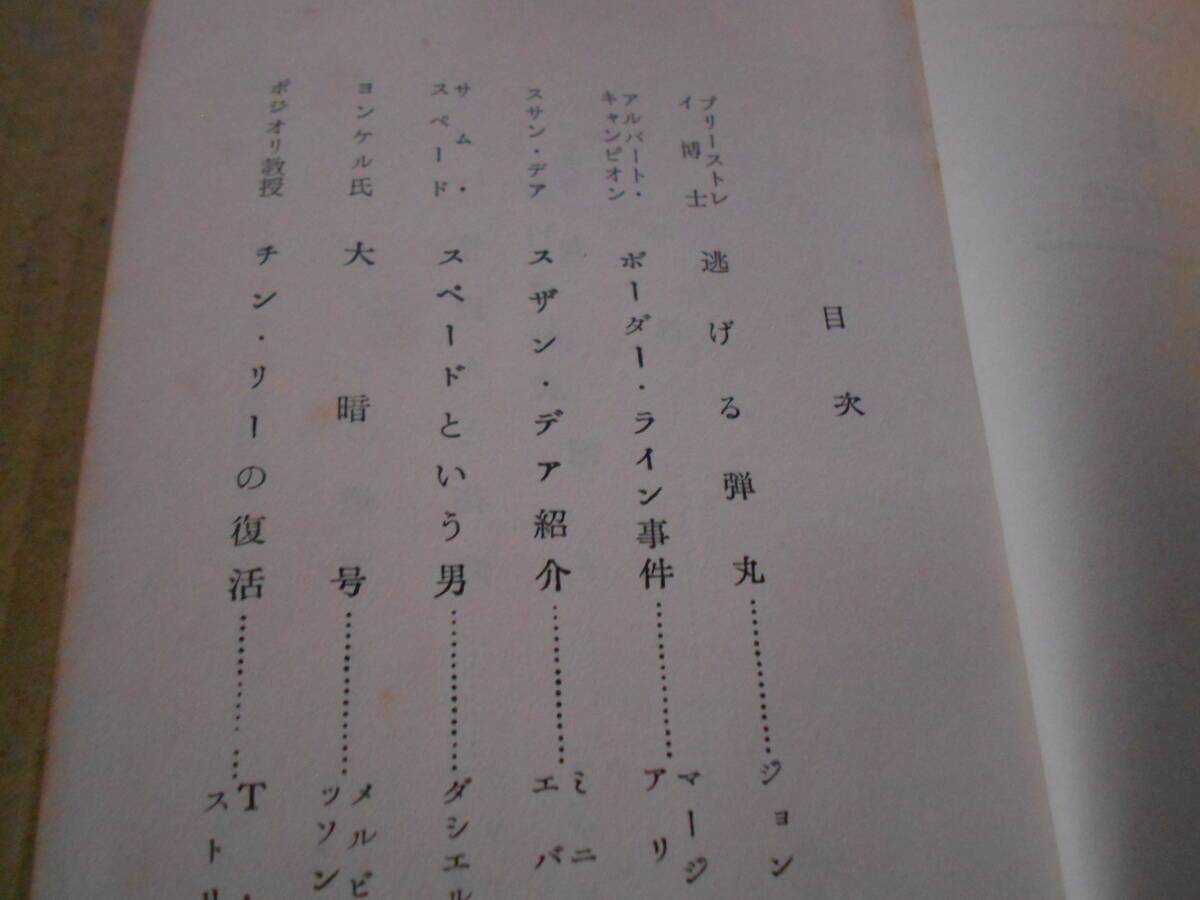 目次
プリーストレイ博士 逃げる弾丸……………ジョン
アルバート・キャンピオン ボーダー・ライン事件……………マージ
アリ
スサン・デア スザン・デア紹介……………ミニ
エバ
サム・スペード スペードという男……………ダシエル
ヨンケル氏 大暗号……………メルビ
ッソン
ポジオリ教授 チン・リーの復活……………T・
ストリ